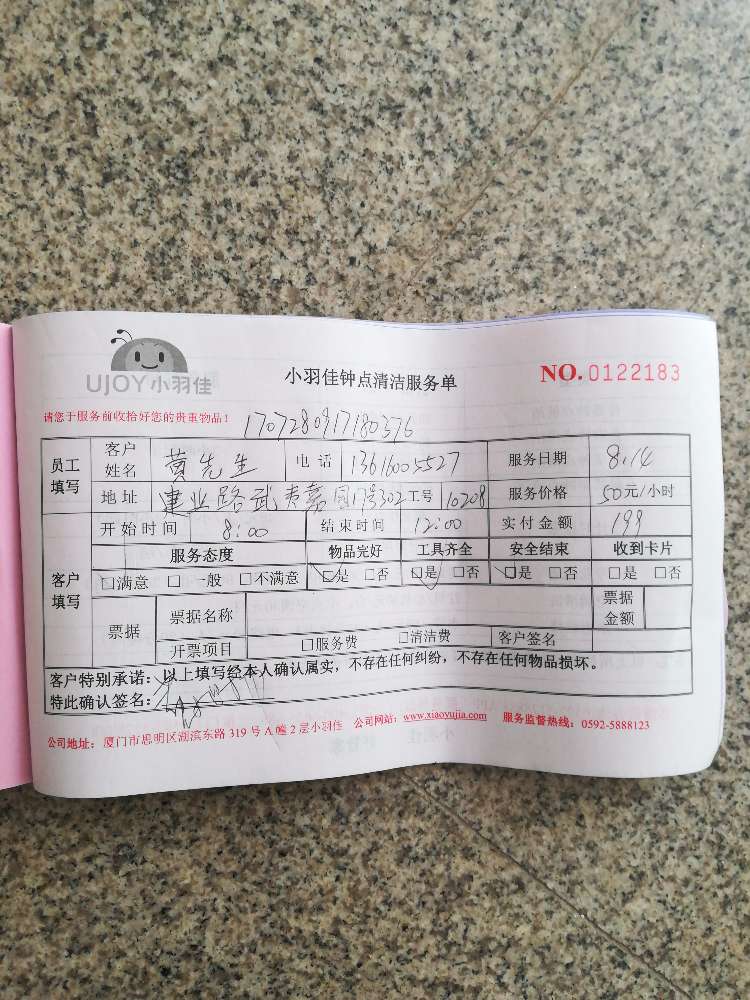 UJOY小羽佳
小羽佳钟点清洁服务单
NO.0122183
请您于服务前收拾好您的贵重物品!
1707280917180376
员工填写 客户姓名 黄先生 电话 13616005527 服务日期 8.14
地址 建业路武夷嘉园17号302 工号 10208 服务价格 50元/小时
客户填写 开始时间 8:00 结束时间 12:00 实付金额 199
服务态度 物品完好 工具齐全 安全结束 收到卡片
☑满意 □一般 □不满意 ☑是 □否 ☑是 □否 ☑是 □否 □是 □否
票据 票据名称 票据金额
开票项目 □服务费 □清洁费 客户签名
客户特别承诺:以上填写经本人确认属实,不存在任何纠纷,不存在任何物品损坏。
特此确认签名:
公司地址:厦门市思明区湖滨东路 319 号 A 幢 2 层小羽佳 公司网站:www.xiaoyujia.com 服务监督热线:0592-5888123